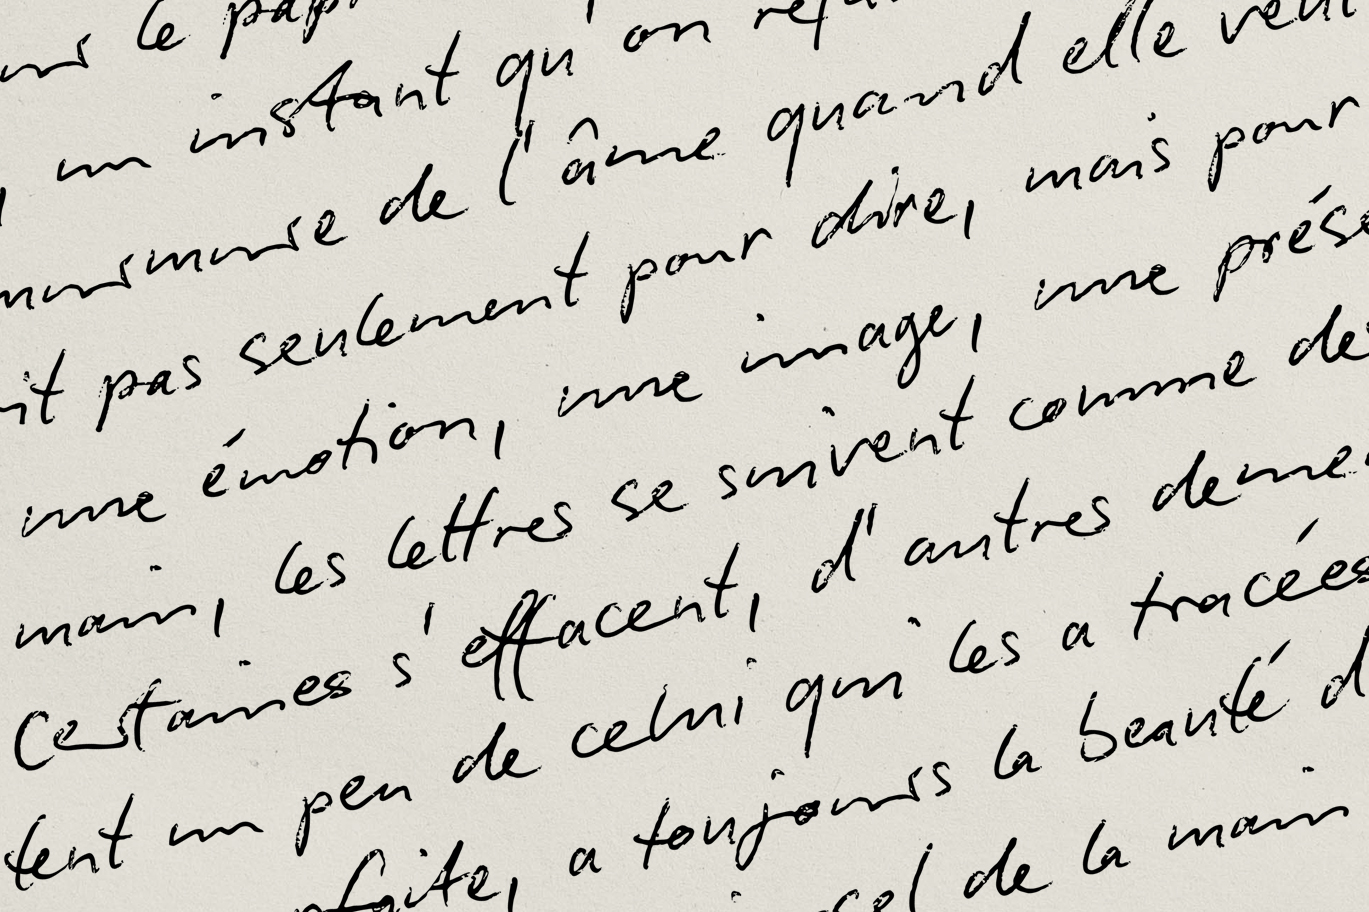 sur le pap
, un instant qu'on refu
murmure de l'âme quand elle veut
it pas seulement pour dire, mais pour
une émotion, une image, une prése
main, les lettres se suivent comme des
Certaines s'effacent, d'autres demeu
tent un peu de celui qui les a tracées
rfaite, a toujours la beauté d
de la main